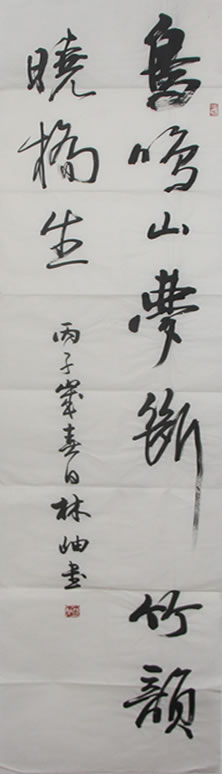 鳥鳴山夢斷竹韻
曉橋生
丙子歲春日林岫書